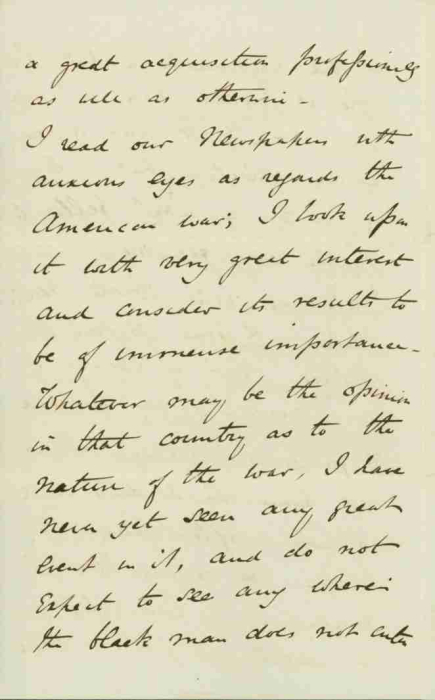 a great acquisition professionally
as well as otherwise -
I read our Newspapers with
anxious eyes as regards the
American war; I look upon
it with very great interest
and consider its results to
be of immense importance -
Whatever may be the opinion
in that country as to the
nature of the war, I have
never yet seen any great
event in it, and do not
expect to see any wherein
the black man does not enter